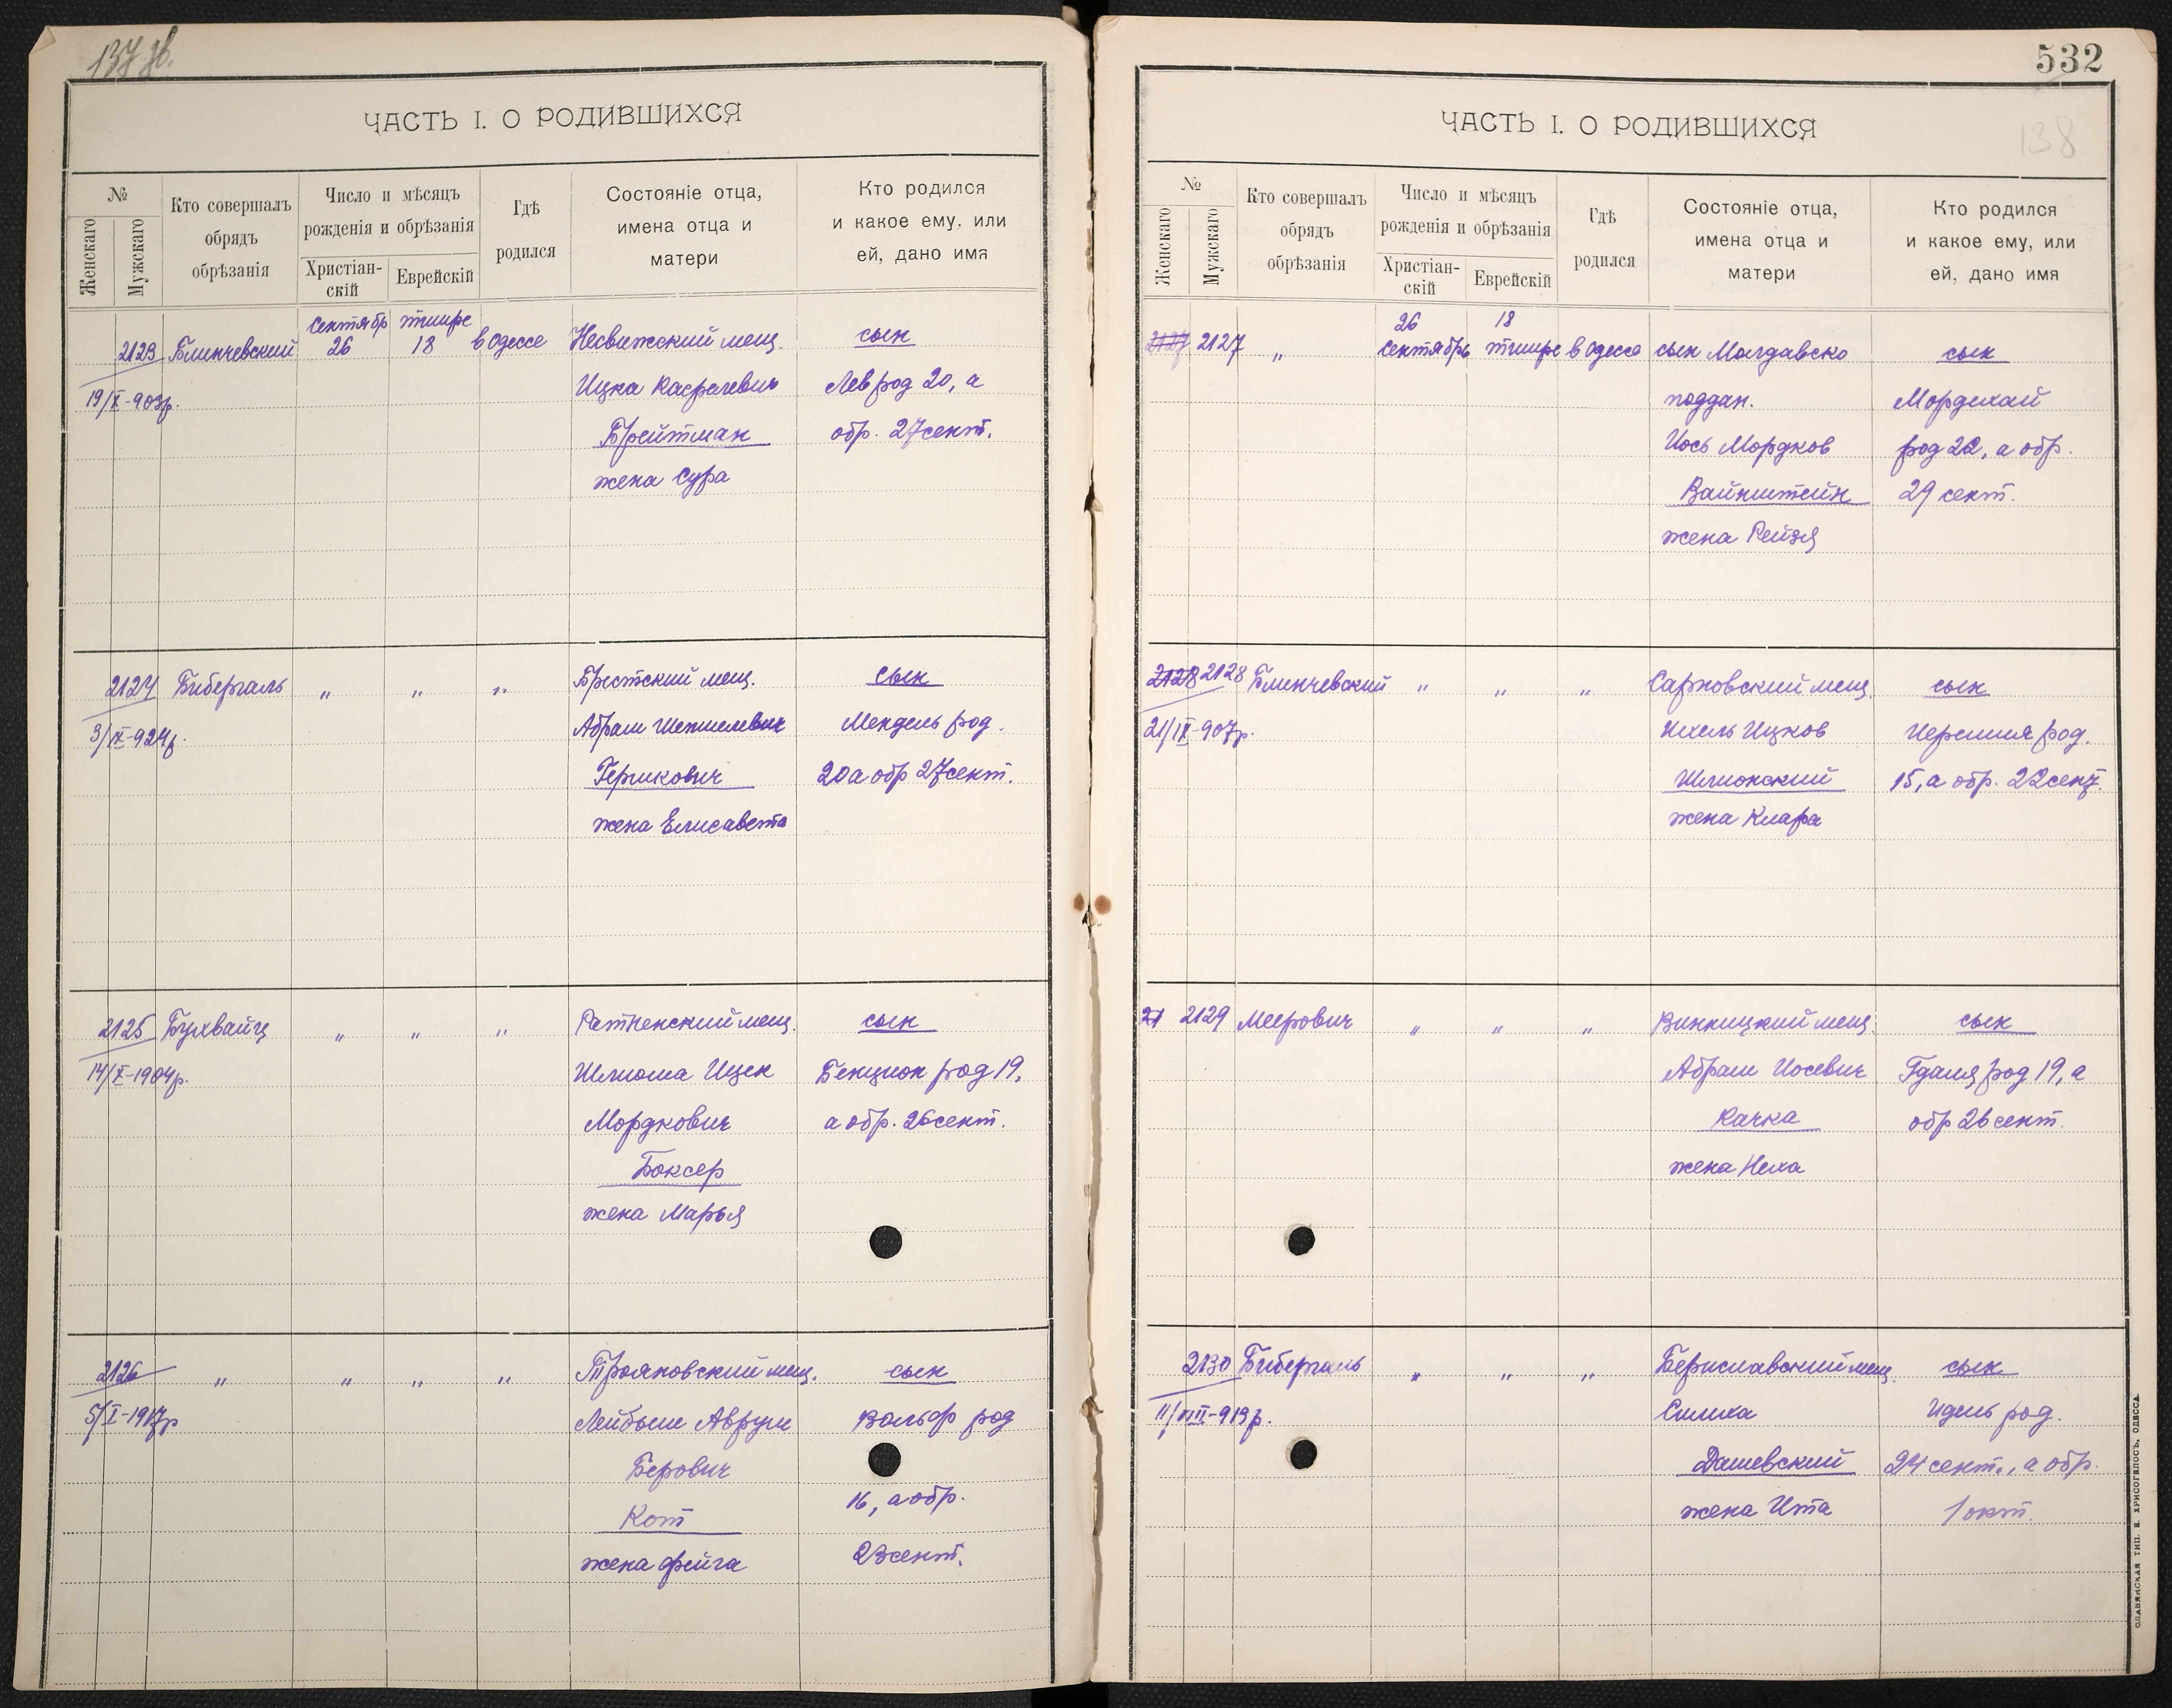 137 об.
ЧАСТЬ I. О РОДИВШИХСЯ
№
Женскаго
Мужскаго
Кто совершалъ
обрядъ
обрѣзанія
Число и мѣсяцъ
рожденія и обрѣзанія
Христіан-
скій
Еврейскій
Гдѣ
родился
Состояніе отца,
имена отца и
матери
Кто родился
и какое ему, или
ей, дано имя
2123 Блинчевский Сентябр 26 тишре 18 в Одессе Несвижский мещ. сын
19/X-903р. Ицка Лев род 20, а
Брейтман обр. 27 сент.
жена Сура
2124 Бибергаль " " " Брестский мещ. сын
3/IX-924р. Абрам Мендель род.
Гершкович 20 а обр 27 сент.
жена Елисавета
2125 Бухвайц " " " Ратненский мещ. сын
14/X-1904р. Шлиома Ицек Бенцион род 19,
Мордкович а обр. 26 сент.
Боксер
жена Марья
2126 " " " " Трояновский мещ. сын
5/I-1917р Лейбыш Аврум Вольф род
Берович
Кот 16, а обр.
жена Фейга 23 сент.
532
138
ЧАСТЬ I. О РОДИВШИХСЯ
№
Женскаго
Мужскаго
Кто совершалъ
обрядъ
обрѣзанія
Число и мѣсяцъ
рожденія и обрѣзанія
Христіан-
скій
Еврейскій
Гдѣ
родился
Состояніе отца,
имена отца и
матери
Кто родился
и какое ему, или
ей, дано имя
26 18
2127 2127 " сентябрь тишре в Одессе сын Молдавско сын
поддан. Мордехай
Иось Мордков род 22, а обр.
Вайнштейн 29 сент.
жена Рейзя
2128 2128 Блинчевский " " " мещ. сын
21/IX-907р. Ихель Ицков Иеремия род.
Шлионский 15, а обр. 22 сент.
жена Клара
21 2129 Меерович " " " Винницкий мещ. сын
Абрам Иосевич Гдаля род 19, а
Качка обр 26 сент.
жена Неха
2130 Бибергаль " " " Бериславский мещ. сын
11/VIII-919р. Симха Идель род.
Дашевский 24 сент., а обр.
жена Ита 1 окт.
СЛАВЯНСКАЯ ТИП. Е. ХРИСОГЕЛОСЪ, ОДЕССА.